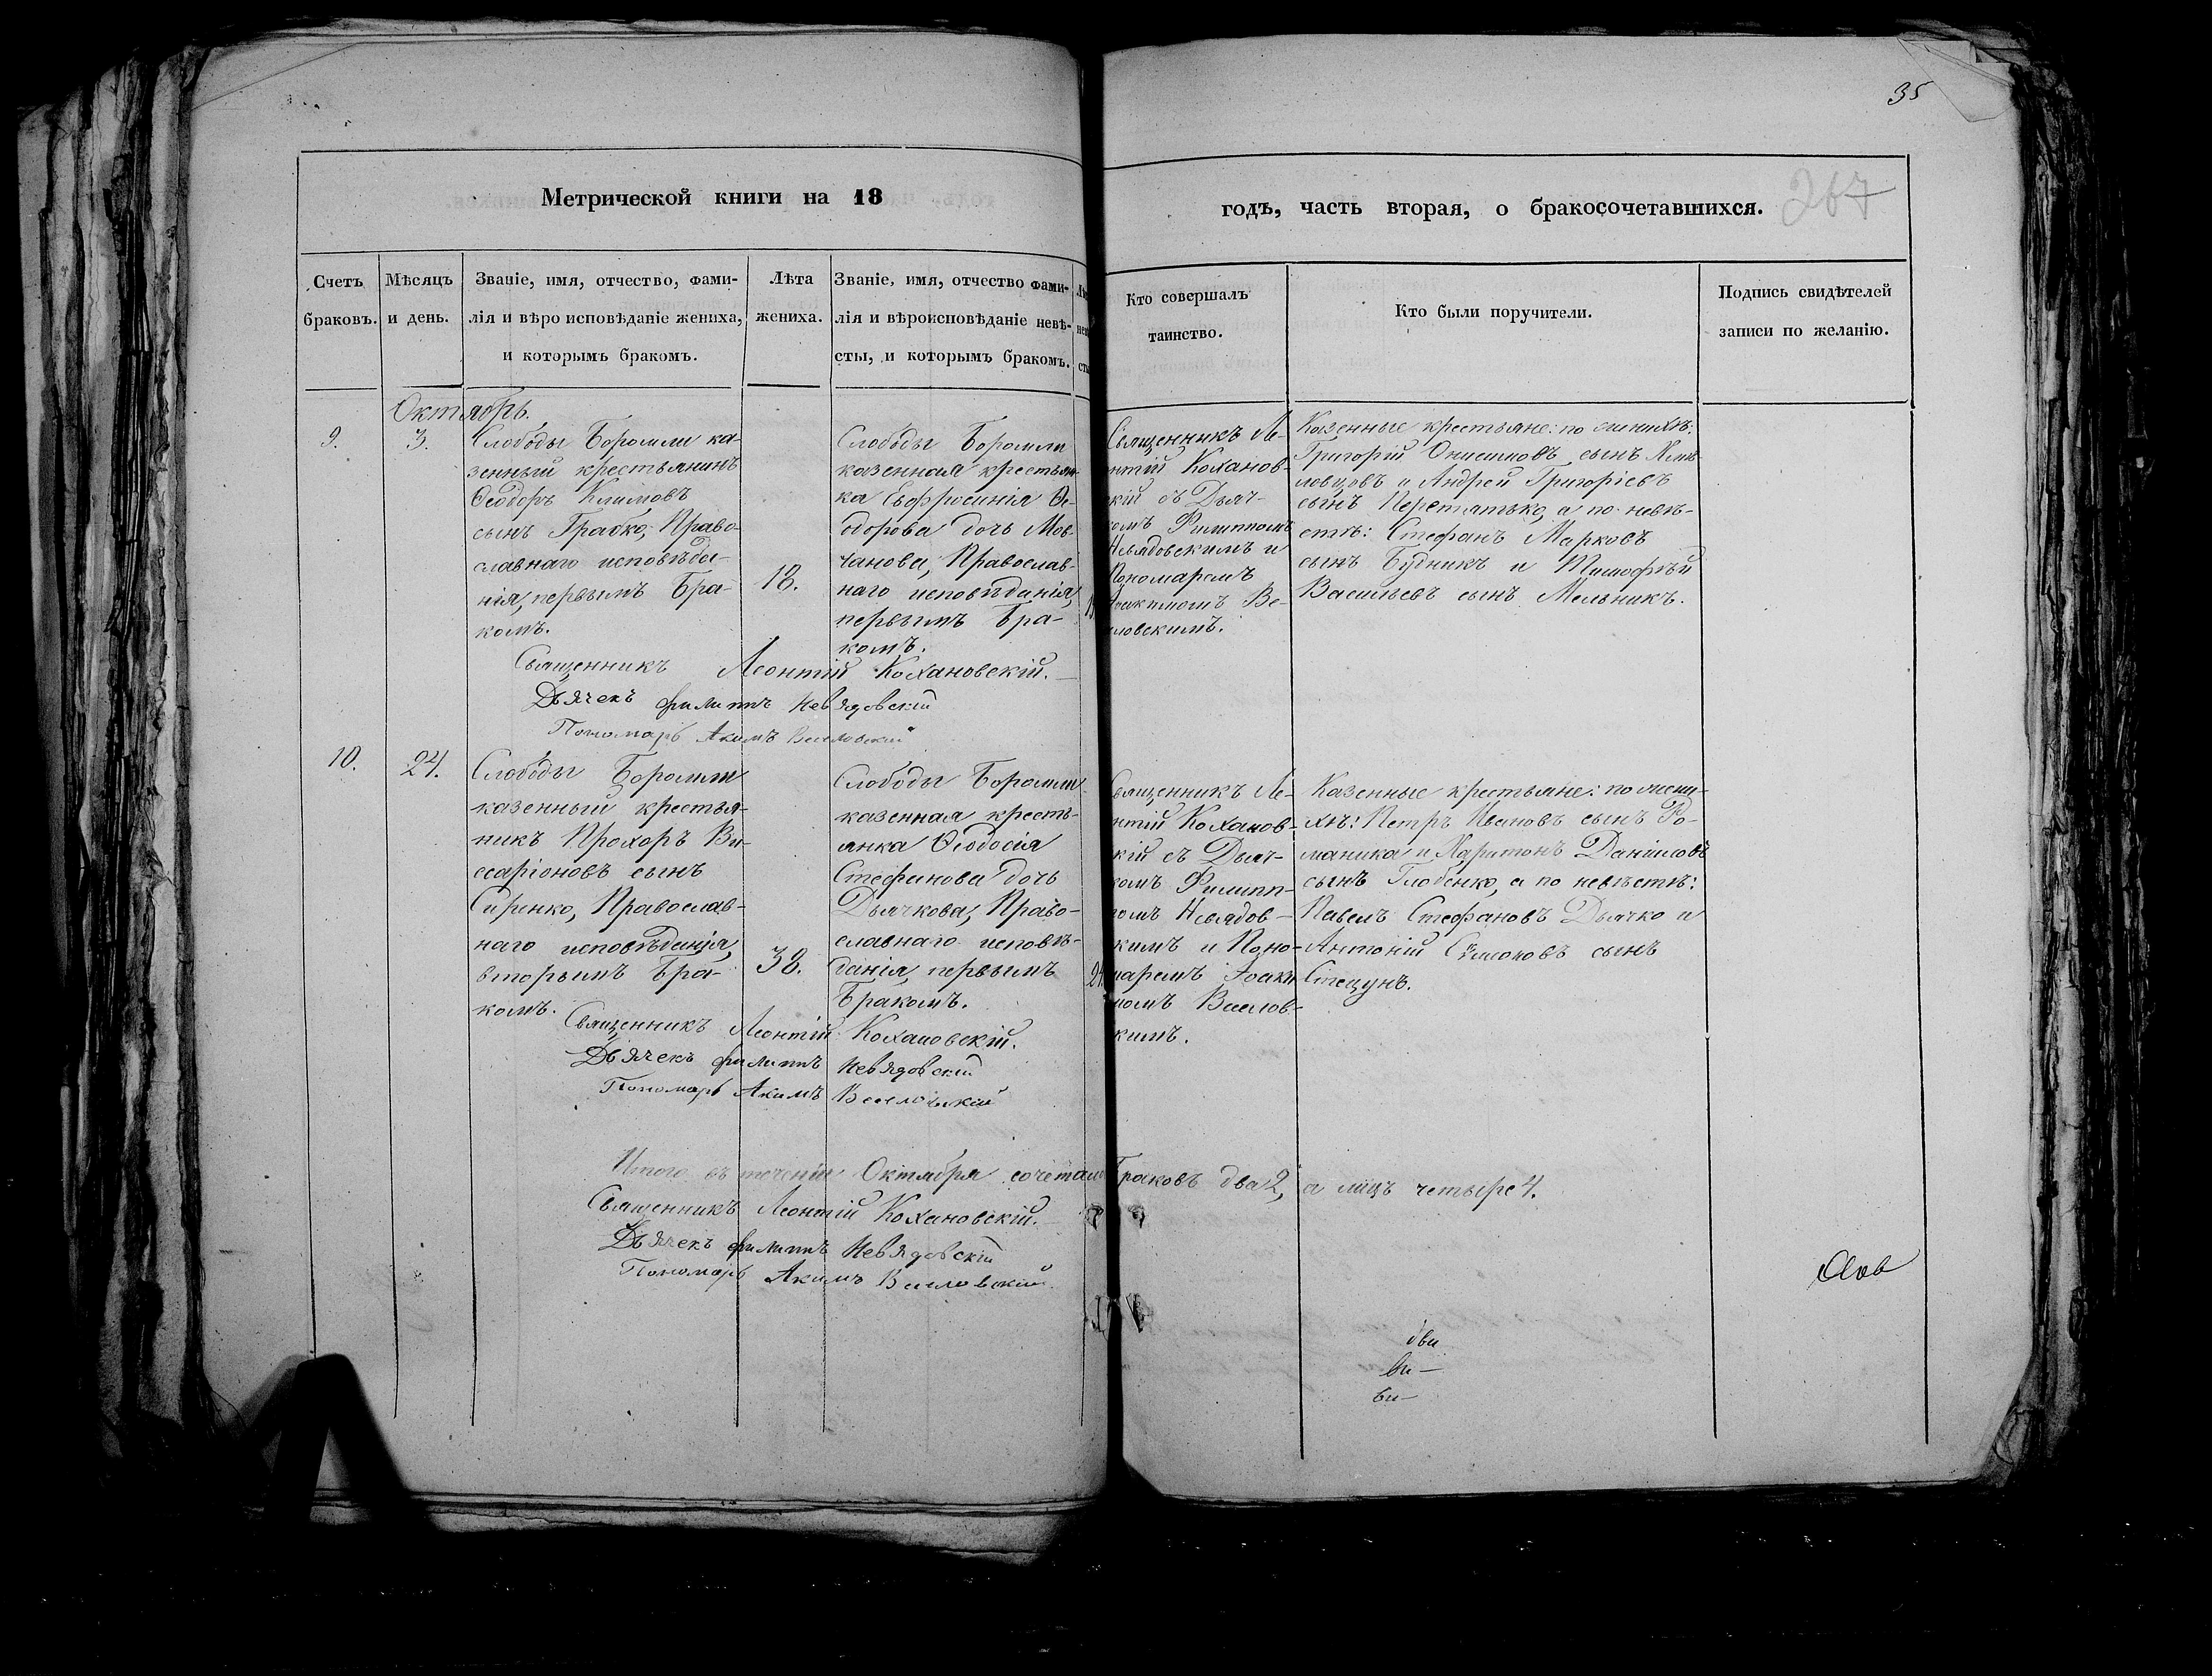 35
267
Метрической книги на 18
годъ, часть вторая, о бракосочетавшихся.
Счетъ браковъ.
Мѣсяцъ и день.
Званіе, имя, отчество, фами-
лія и вѣро исповѣданіе жениха,
и которымъ бракомъ.
Лѣта
жениха.
Званіе, имя, отчество фами-
лія и вѣроисповѣданіе невѣ-
сты, и которымъ бракомъ.
Кто совершалъ
таинство.
Кто были поручители.
Подпись свидѣтелей
записи по желанію.
Октябрь.
9.
3.
Слободы Боромли ка-
зенный крестьянинъ
Ѳеодоръ Климовъ
сынъ Грабко, Право-
славнаго исповѣда-
нія, первымъ бра-
комъ.
18.
Слободы Боромли
казенная крестьян-
ка Евфросинія Ѳе-
одорова дочь Мов-
чанова, Православ-
наго исповѣданія,
первымъ бра-
комъ.
Священникъ Ле-
нтій Коханов-
кій съ Дьяч-
омъ Филиппомъ
Невядовскимъ и
Пономаремъ
Іоакимомъ Ве-
ловскимъ.
Казенные крестьяне: по женихѣ:
Григорій Онисимовъ сынъ
и Андрей Григоріевъ
сынъ Перетятько, а по невѣ-
стѣ: Стефанъ Марковъ
сынъ Будникъ и Тимофѣй
Васильевъ сынъ Мельникъ.
Священникъ Леонтій Кохановскій.
Дьячекъ Филиппъ Невядовскій
Пономарь Акимъ Веселовскій
10.
24.
Слободы Боромли
казенный крестья-
нинъ Прохоръ Ви-
саріоновъ сынъ
Сиренко, Православ-
наго исповѣданія,
вторымъ бра-
комъ.
38.
Слободы Боромли
казенная кресть-
янка Ѳеодосія
Стефанова дочь
Дьячкова, Право-
славнаго исповѣ-
данія, первымъ
бракомъ.
Священникъ Ле-
нтій Коханов-
кій съ Дьяч-
комъ Филипп-
омъ Невядов-
кимъ и Поно-
маремъ Іоаки-
момъ Веелов-
кимъ.
Казенные крестьяне: по жени-
хѣ: Петръ Ивановъ сынъ Ро-
маника и Харитонъ Даніиловъ
сынъ Глобенко, а по невѣстѣ:
Павелъ Стефановъ Дьячко и
Антоній Симоновъ сынъ
Стецунъ.
Священникъ Леонтій Кохановскій.
Дьячекъ Филиппъ Невядовскій
Пономарь Акимъ Веселовскій
Итого въ теченіи Октября сочетано браковъ два 2, а лицъ четыре 4.
Священникъ Леонтій Кохановскій.
Дьячекъ Филиппъ Невядовскій
Пономарь Акимъ Веселовскій